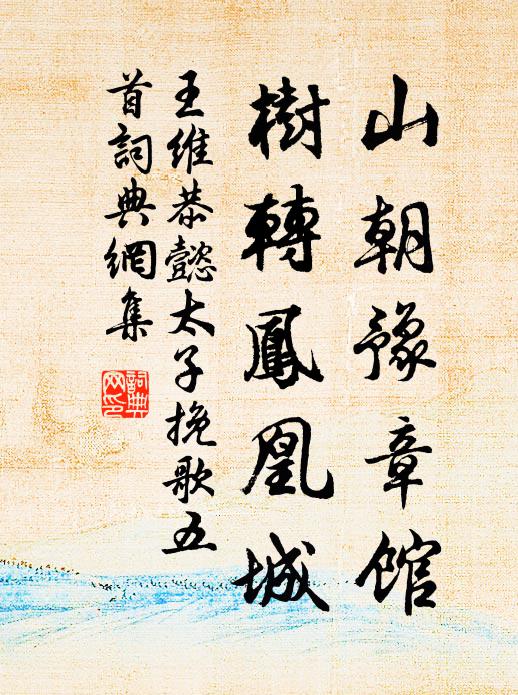 山朝豫章馆
樹轉鳳凰城
王維恭懿太子挽歌五
首詞典網集
詞典
网印